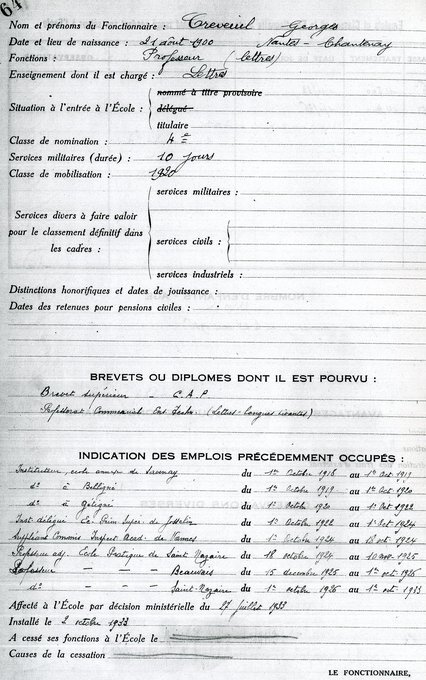 64
Nom et prénoms du Fonctionnaire : Creveuil Georges
Date et lieu de naissance : 21 août 1900 Nantes - Chantenay
Fonctions : Professeur (lettres)
Enseignement dont il est chargé : Lettres
nommé à titre provisoire
Situation à l'entrée à l'École : délégué
titulaire
Classe de nomination : 4e
Services militaires (durée) : 10 jours
Classe de mobilisation : 1920
services militaires :
Services divers à faire valoir
pour le classement définitif dans
les cadres :
services civils :
services industriels :
Distinctions honorifiques et dates de jouissance :
Dates des retenues pour pensions civiles :
BREVETS OU DIPLOMES DONT IL EST POURVU :
Brevet supérieur - C.A.P
Professorat Commercial Ens Techn. (Lettres-Langues vivantes)
INDICATION DES EMPLOIS PRÉCÉDEMMENT OCCUPÉS :
Instituteur, école annexe de Savenay du 1er Octobre 1918 au 1er Oct 1919
do à Belligné du 1er Octobre 1919 au 1er Oct 1920
do à du 1er Octobre 1920 au 1er Oct 1922
Inst délégué Ec. Prim Supre de Josselin du 1er Octobre 1922 au 1er Oct 1924
Suppléant Commis Inspect Acad. de Vannes du 1er Octobre 1924 au 18 oct 1924
Professeur adj. Ecole Pratique de Saint Nazaire du 18 octobre 1924 au 10 nov 1925
Professeur — — — Beauvais du 15 décembre 1925 au 1er oct 1926
do — — — Saint-Nazaire du 1er octobre 1926 au 1er oct 1933
Affecté à l'École par décision ministérielle du 27 juillet 1933
Installé le 2 octobre 1933
A cessé ses fonctions à l'École le
Causes de la cessation
LE FONCTIONNAIRE,